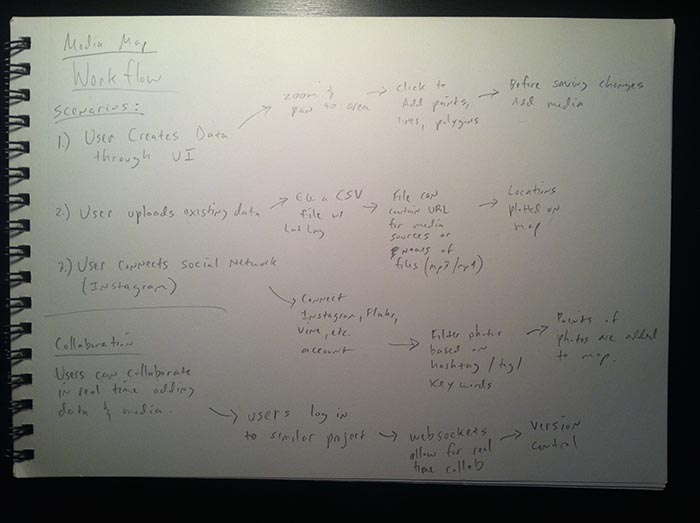 Media Map
Workflow
Scenarios:
1.) User Creates Data
through UI
zoom &
pan to area
click to
Add points,
lines, polygons
Before saving changes
Add media
2.) User uploads existing data
EG. a CSV
file w/
Lat Lng
File can
contain URL
for media
sources or
names of
files (mp3/mp4)
Locations
plotted on
map
3.) User connects social network
(Instagram)
Connect
Instagram, Flickr,
Vine, etc.
account
Filter photos
based on
hashtag / tag /
key words
Points of
photos are added
to map.
Collaboration
Users can collaborate
in real time adding
data & media.
users log in
to similar project
websockets
allow for real
time collab
version
control